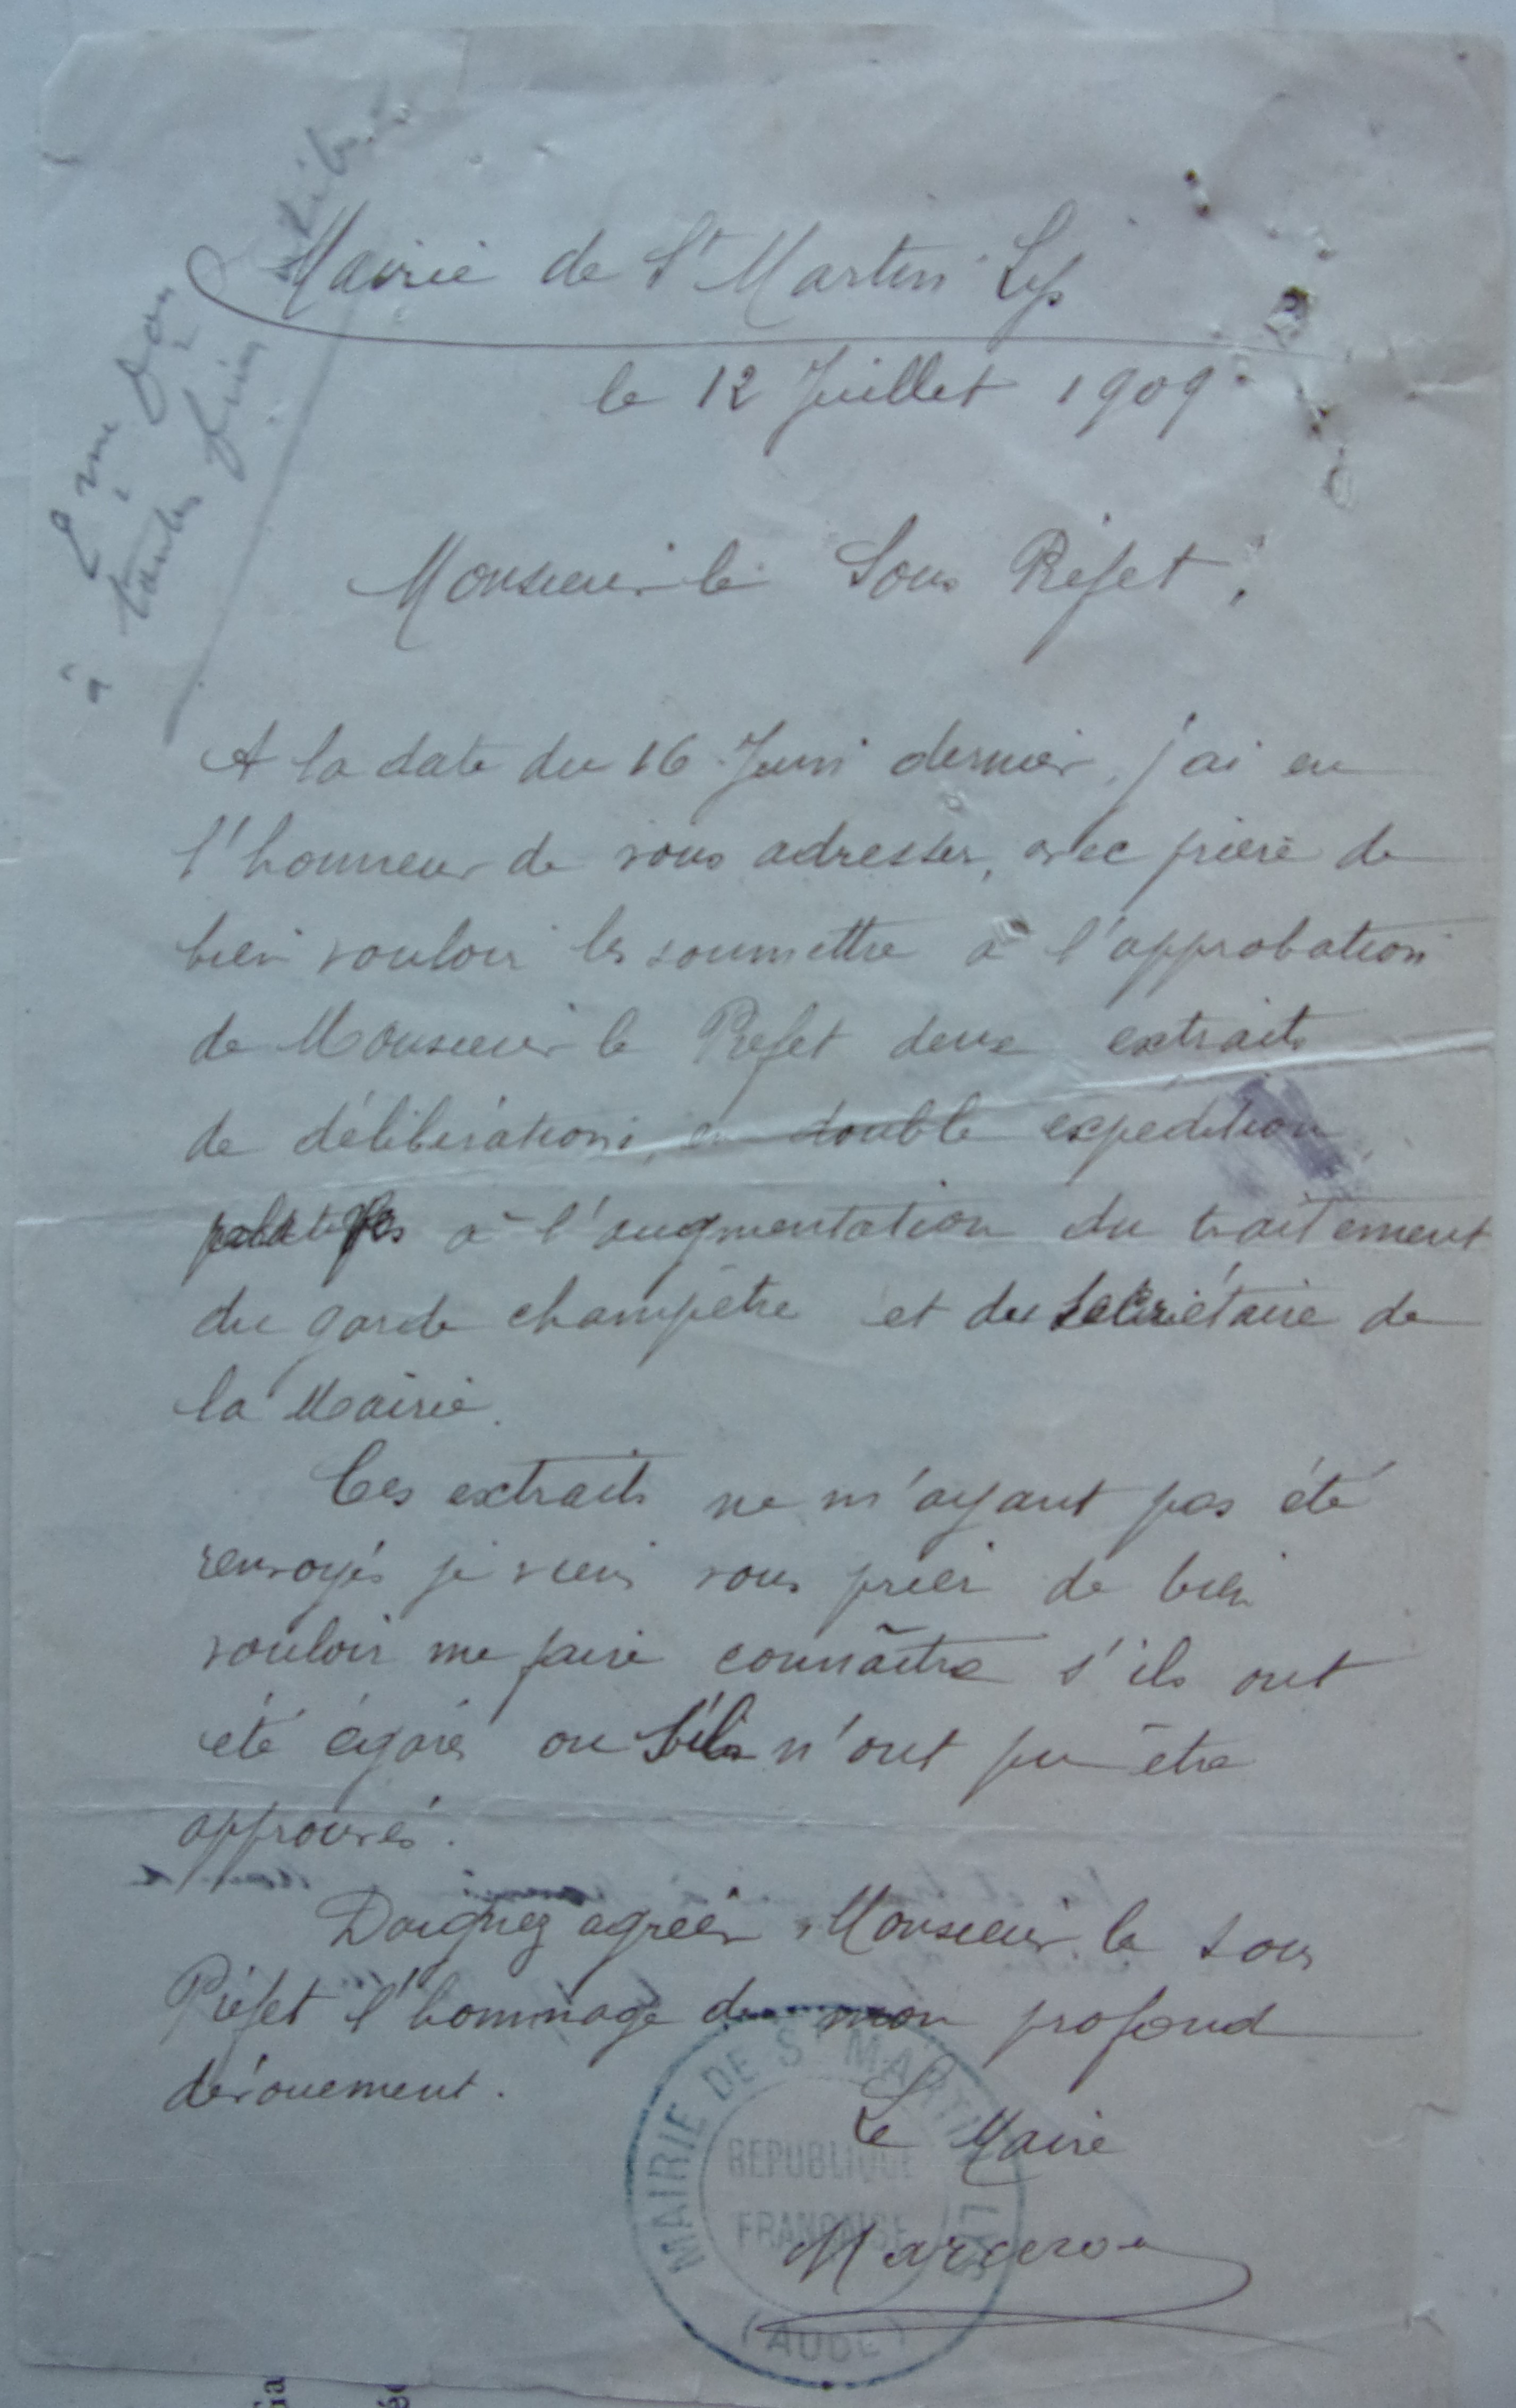 Mairie de St Martin Lys
le 12 Juillet 1909
Monsieur le Sous Préfet,
A la date du 16 Juin dernier, j'ai eu
l'honneur de vous adresser, avec prière de
bien vouloir les soumettre à l'approbation
de Monsieur le Préfet deux extraits
de délibérations, en double expédition,
relatifs à l'augmentation du traitement
du garde champêtre et du secrétaire de
la Mairie.
Ces extraits ne m'ayant pas été
renvoyés je viens vous prier de bien
vouloir me faire connaître s'ils ont
été égarés ou s'ils n'ont pu être
approuvés.
Daignez agréer, Monsieur le Sous
Préfet l'hommage de mon profond
dévouement.
Le Maire
MAIRIE DE St MARTIN LYS
REPUBLIQUE
FRANÇAISE
(AUDE)
à toutes fins